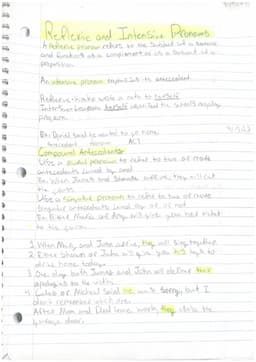 Reflexive and Intensive Pronouns
A Reflexive pronoun refers to the subject of a sentence
and functions as a complement or as a object of a
preposition
An intensive pronoun emphasizes its antecedent
Reflexive- Lakisha wrote a note to herself
Intensive- herself identified the
program
Ex: Daniel said he wanted to go home
Antecedent Pronoun ACT
Compound Antecedents-
Use a plural pronoun to refer to two or more
antecedents joined by and
Ex. When Jamal and arrive, they will cut
the
Use a singular pronoun to refer to two or more
singular antecedents joined by or or nor
Ex. Either Maria or Amy will give you her ticket
to the game.
1. When Mary and John arrive, they will sing together
2. Either Shawn or John will give you his keys to
drive home today.
3. One day both James and John will deliver their
apologies to the victim
4. Caleb or Michael said he was sorry, but I
don't remember which one.
After Mom and Dad leave work, they close the
garage door.